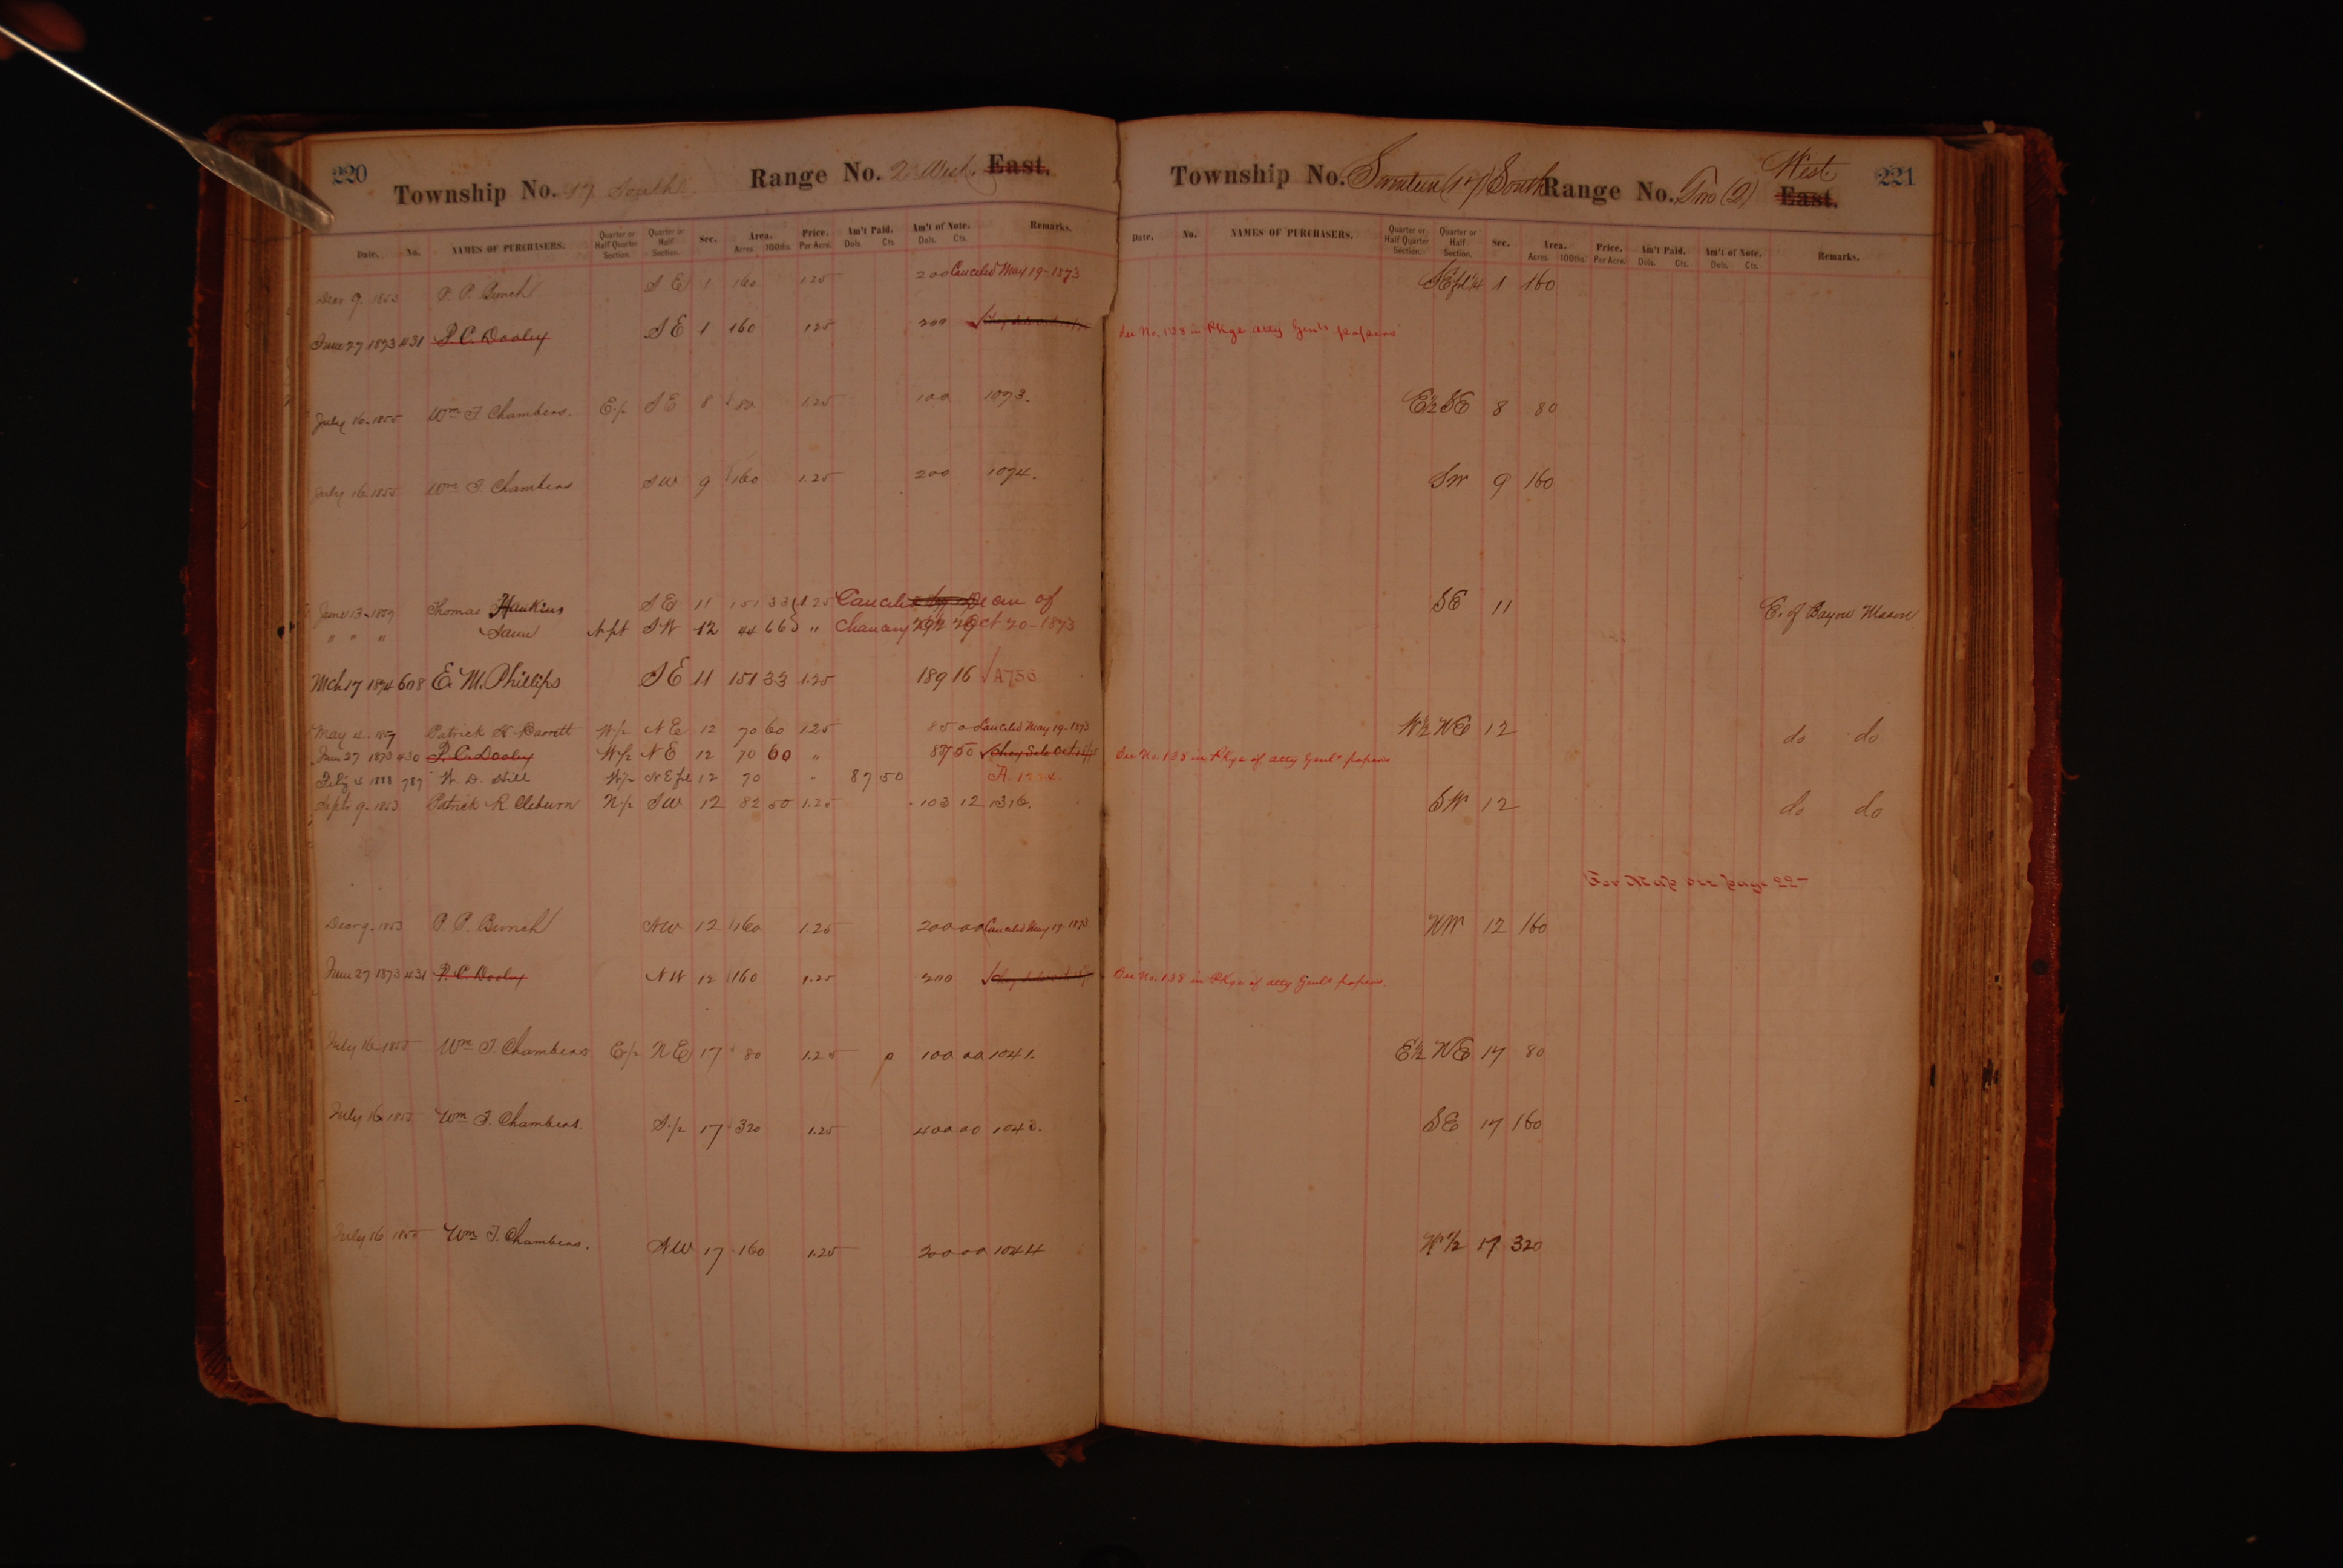 220
Township No. 17 South Range No. 2 West East.
Date. No. NAMES OF PURCHASERS. Quarter or Half Quarter Section. Quarter or Half Section. Sec. Area. Acres 100ths. Price. Per Acre. Am't Paid. Dols. Cts. Am't of Note. Dols. Cts. Remarks.
9. 1853 P. P. Bunch S E 1 160 1.25 200 Canceled May 19-1873
June 27 1873 431 P. C. Dooley S E 1 160 1.25 200
July 16-1855 Wm T. Chambers. E½ S E 8 80 1.25 100 1073.
July 16 1855 Wm T. Chambers S W 9 160 1.25 200 1074.
June 13-1859 Thomas Hawkins S E 11 151 33 1.25 Canceled by Decree of
" " " Same N pt S W 12 44 66 " Chancery Oct 20-1873
Mch 17 1874 608 E. M. Phillips S E 11 151 33 1.25 189 16 √ A 756
May 4. 1857 Patrick H. Barrett W½ N E 12 70 60 1.25 Canceled May 19-1873
June 27 1873 430 P. C. Dooley W½ N E 12 70 60 " 87 50
Feby 4 1888 787 W. D. Hill W½ N E frl 12 70 " 87 50
Sept 9. 1853 Patrick R. Cleburn N½ S W 12 82 50 1.25 103 12 1316.
9. 1853 P. P. Bunch N W 12 160 1.25 200 00 Canceled May 19-1873
June 27 1873 431 P. C. Dooley N W 12 160 1.25 200
July 16-1855 Wm T. Chambers E½ N E 17 80 1.25 100 00 1041.
July 16 1855 Wm T. Chambers. S½ 17 320 1.25 400 00
July 16 1855 Wm T. Chambers. N W 17 160 1.25 200 00 1044
221
Township No. Seventeen (17) South Range No. Two (2) West. East.
Date. No. NAMES OF PURCHASERS. Quarter or Half Quarter Section. Quarter or Half Section. Sec. Area. Acres 100ths. Price. Per Acre. Am't Paid. Dols. Cts. Am't of Note. Dols. Cts. Remarks.
SE frl ¼ 1 160
See No. 138 in Pkge Atty Genl's papers
E½ SE 8 80
SW 9 160
SE 11 E. of Bayou Mason
W½ NE 12 do do
See No. 138 in Pkge of Atty Genl's papers
SW 12 do do
For Map see page
NW 12 160
See No. 138 in Pkge of Atty Genl's papers.
E½ NE 17 80
SE 17 160
W½ 17 320